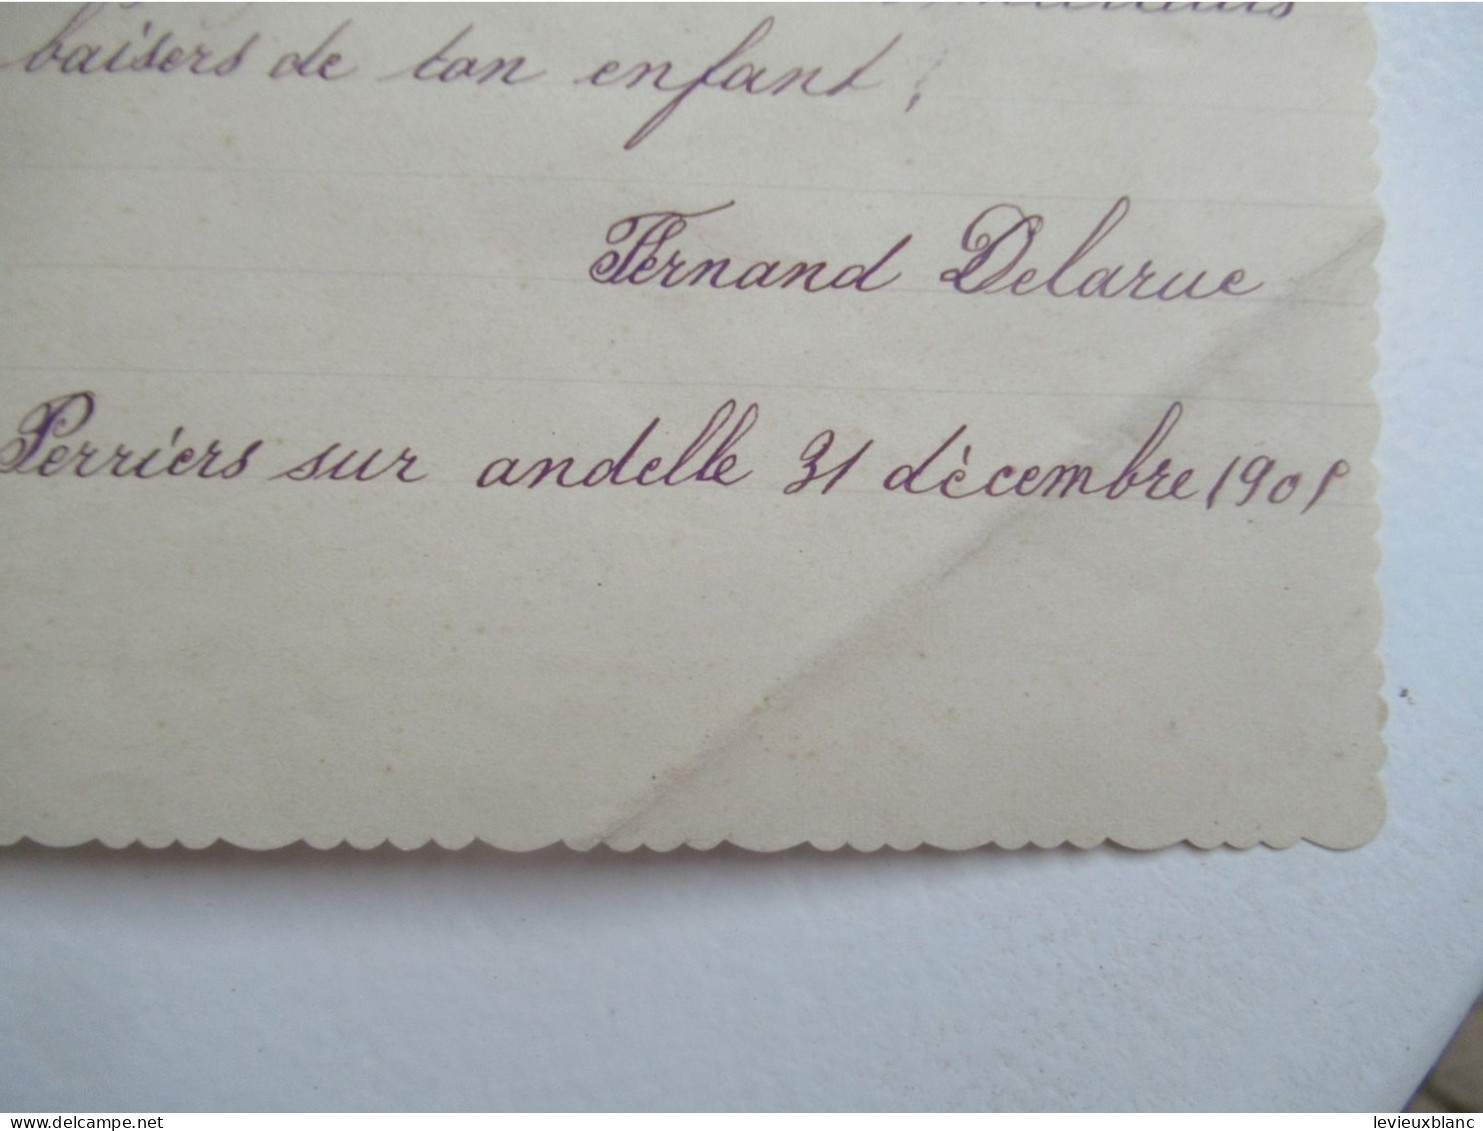 baisers de ton enfant,
Fernand Delarue
Perriers sur andelle 31 dècembre 1901
levieuxblanc